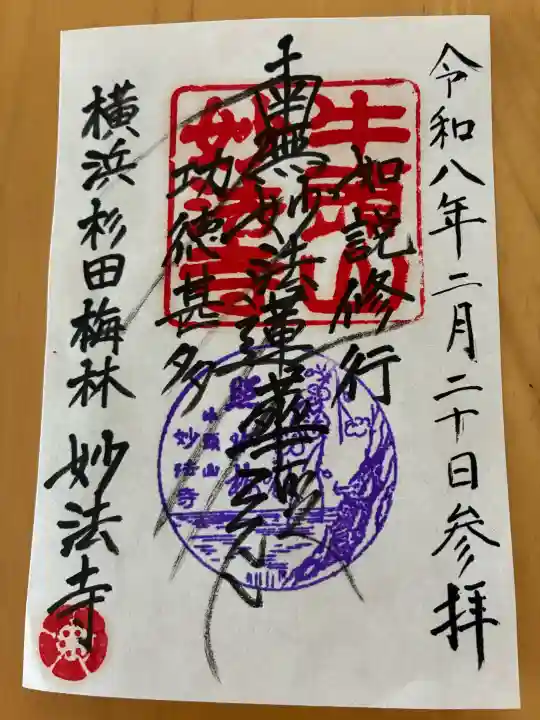 令和八年二月二十日参拝
如説修行
南無妙法蓮華経
功徳甚多
横浜杉田梅林 妙法寺
牛頭山
妙法寺
牛頭山
妙法寺